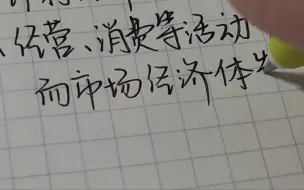 、经营、消费等活动
而市场经济体